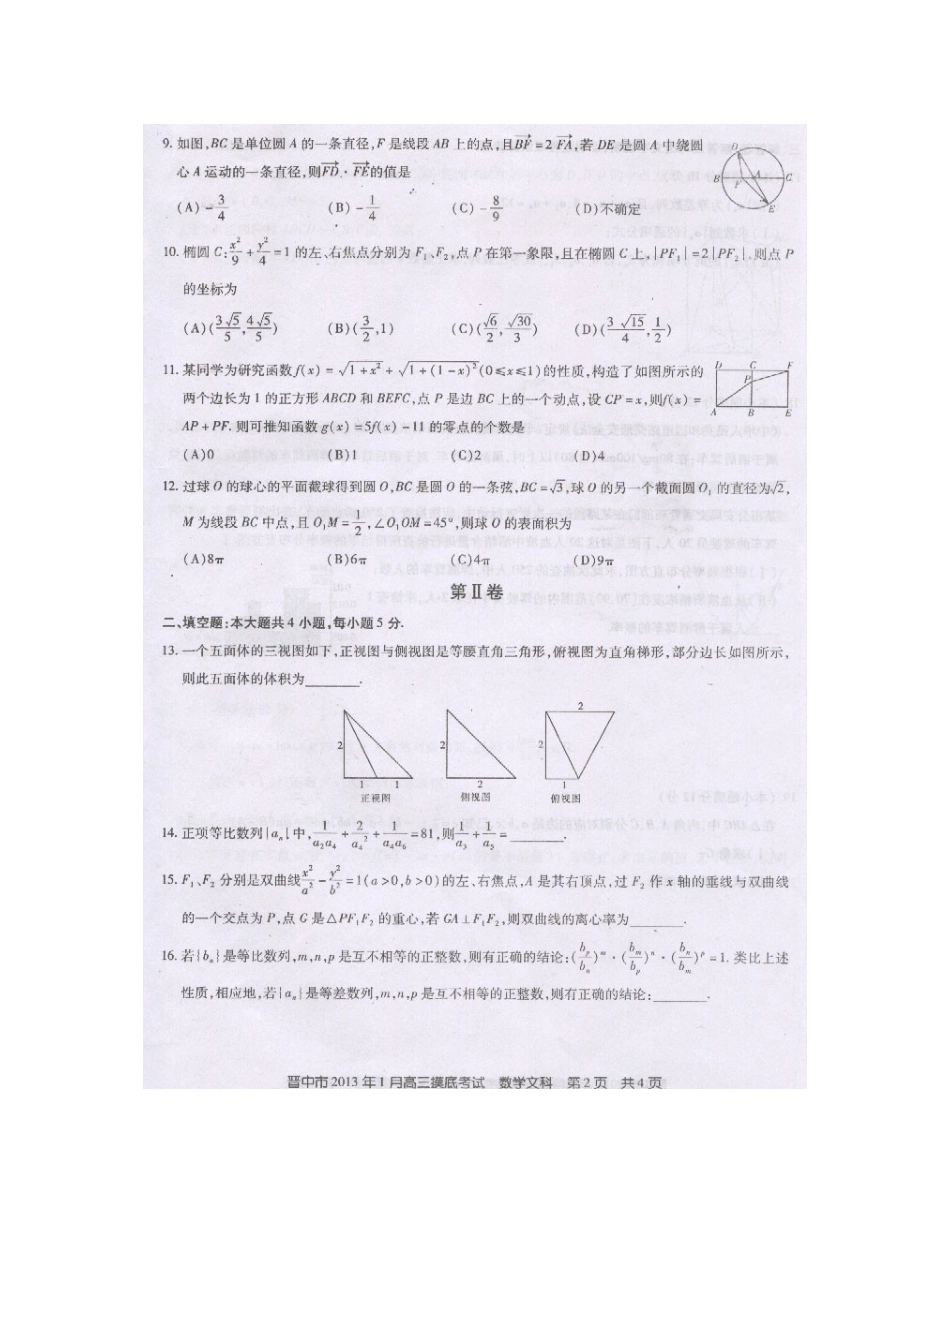 9. 如图,BC 是单位圆 A 的一条直径,F 是线段 AB 上的点,且BF⃗=2FA⃗,若 DE 是圆 A 中绕圆
心 A 运动的一条直径,则FD⃗·FE⃗的值是
(A) -3/4 (B) -1/4 (C) -8/9 (D)不确定
D
B
F
C
E
10. 椭圆 C: x²/9 + y²/4 = 1 的左、右焦点分别为 F₁、F₂,点 P 在第一象限,且在椭圆 C 上,|PF₁| = 2|PF₂|.则点 P
的坐标为
(A)(3√5/5, 4√5/5) (B)(3/2,1) (C)(√6/2, √30/3) (D)(3√15/4, 1/2)
11. 某同学为研究函数f(x) = √(1+x²) + √(1+(1-x)²)(0≤x≤1)的性质,构造了如图所示的
两个边长为 1 的正方形 ABCD 和 BEFC,点 P 是边 BC 上的一个动点,设 CP=x,则f(x) =
AP+PF. 则可推知函数 g(x)=5f(x)-11 的零点的个数是
(A)0 (B)1 (C)2 (D)4
D C F
P
A B E
12. 过球 O 的球心的平面截球得到圆 O,BC 是圆 O 的一条弦,BC=√3,球 O 的另一个截面圆 O₁ 的直径为√2,
M 为线段 BC 中点,且 O₁M=1/2,∠O₁OM=45°,则球 O 的表面积为
(A)8π (B)6π (C)4π (D)9π
第Ⅱ卷
二、填空题:本大题共 4 小题,每小题 5 分.
13. 一个五面体的三视图如下,正视图与侧视图是等腰直角三角形,俯视图为直角梯形,部分边长如图所示,
则此五面体的体积为______.
2 1 1
正视图
2 2
侧视图
2 2 1
俯视图
14. 正项等比数列{aₙ}中, 1/(a₂a₄) + 2/a₄² + 1/(a₄a₆) = 81,则 1/a₃ + 1/a₅ = ______.
15. F₁、F₂ 分别是双曲线 x²/a² - y²/b² = 1(a>0,b>0)的左、右焦点,A 是其右顶点,过 F₂ 作 x 轴的垂线与双曲线
的一个交点为 P,点 G 是△PF₁F₂ 的重心,若 GA⊥F₁F₂,则双曲线的离心率为______.
16. 若{bₙ}是等比数列,m,n,p 是互不相等的正整数,则有正确的结论:(bₚ/bₙ)ᵐ·(bₘ/bₚ)ⁿ·(bₙ/bₘ)ᵖ=1. 类比上述
性质,相应地,若{aₙ}是等差数列,m,n,p 是互不相等的正整数,则有正确的结论:______.
晋中市 2013 年 1 月高三摸底考试 数学文科 第 2 页 共 4 页